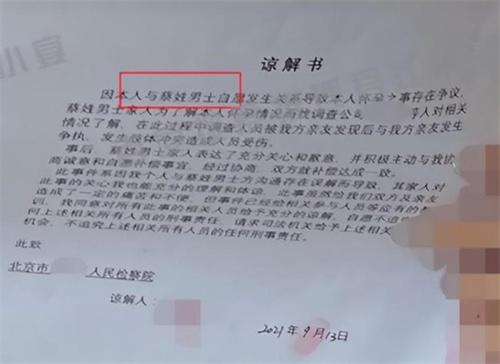 谅解书
因本人与蔡姓男士自愿发生关系导致本人怀孕之事存在争议,
蔡姓男士家人为了解本人怀孕情况而找调查公 人对相关
情况了解,在此过程中调查人员被我方亲友发现后与我方亲友发生
争执,发生肢体冲突造成人员受伤。
事后,蔡姓男士家人表达了充分关心和歉意,并积极主动与我协
商诚意和自愿补偿事宜,经过协商,双方就补偿达成一致。
此事件系因我个人与蔡姓男士方沟通存在误解而导致,其家人对
此事的关心我也能充分的理解和体谅,此事虽然给我们双方及亲友
造成了一定的痛苦和不便,但事件已经给相关参与人员等应有的
训,我同意对所有此事的相关人员给予充分的谅解,自愿不追
何上述相关所有人员的刑事责任。请求司法机关给予上述相关
机会,不追究上述相关人员的任何刑事责任。
此致
北京市 人民检察院
谅解人:
2021年9月13日